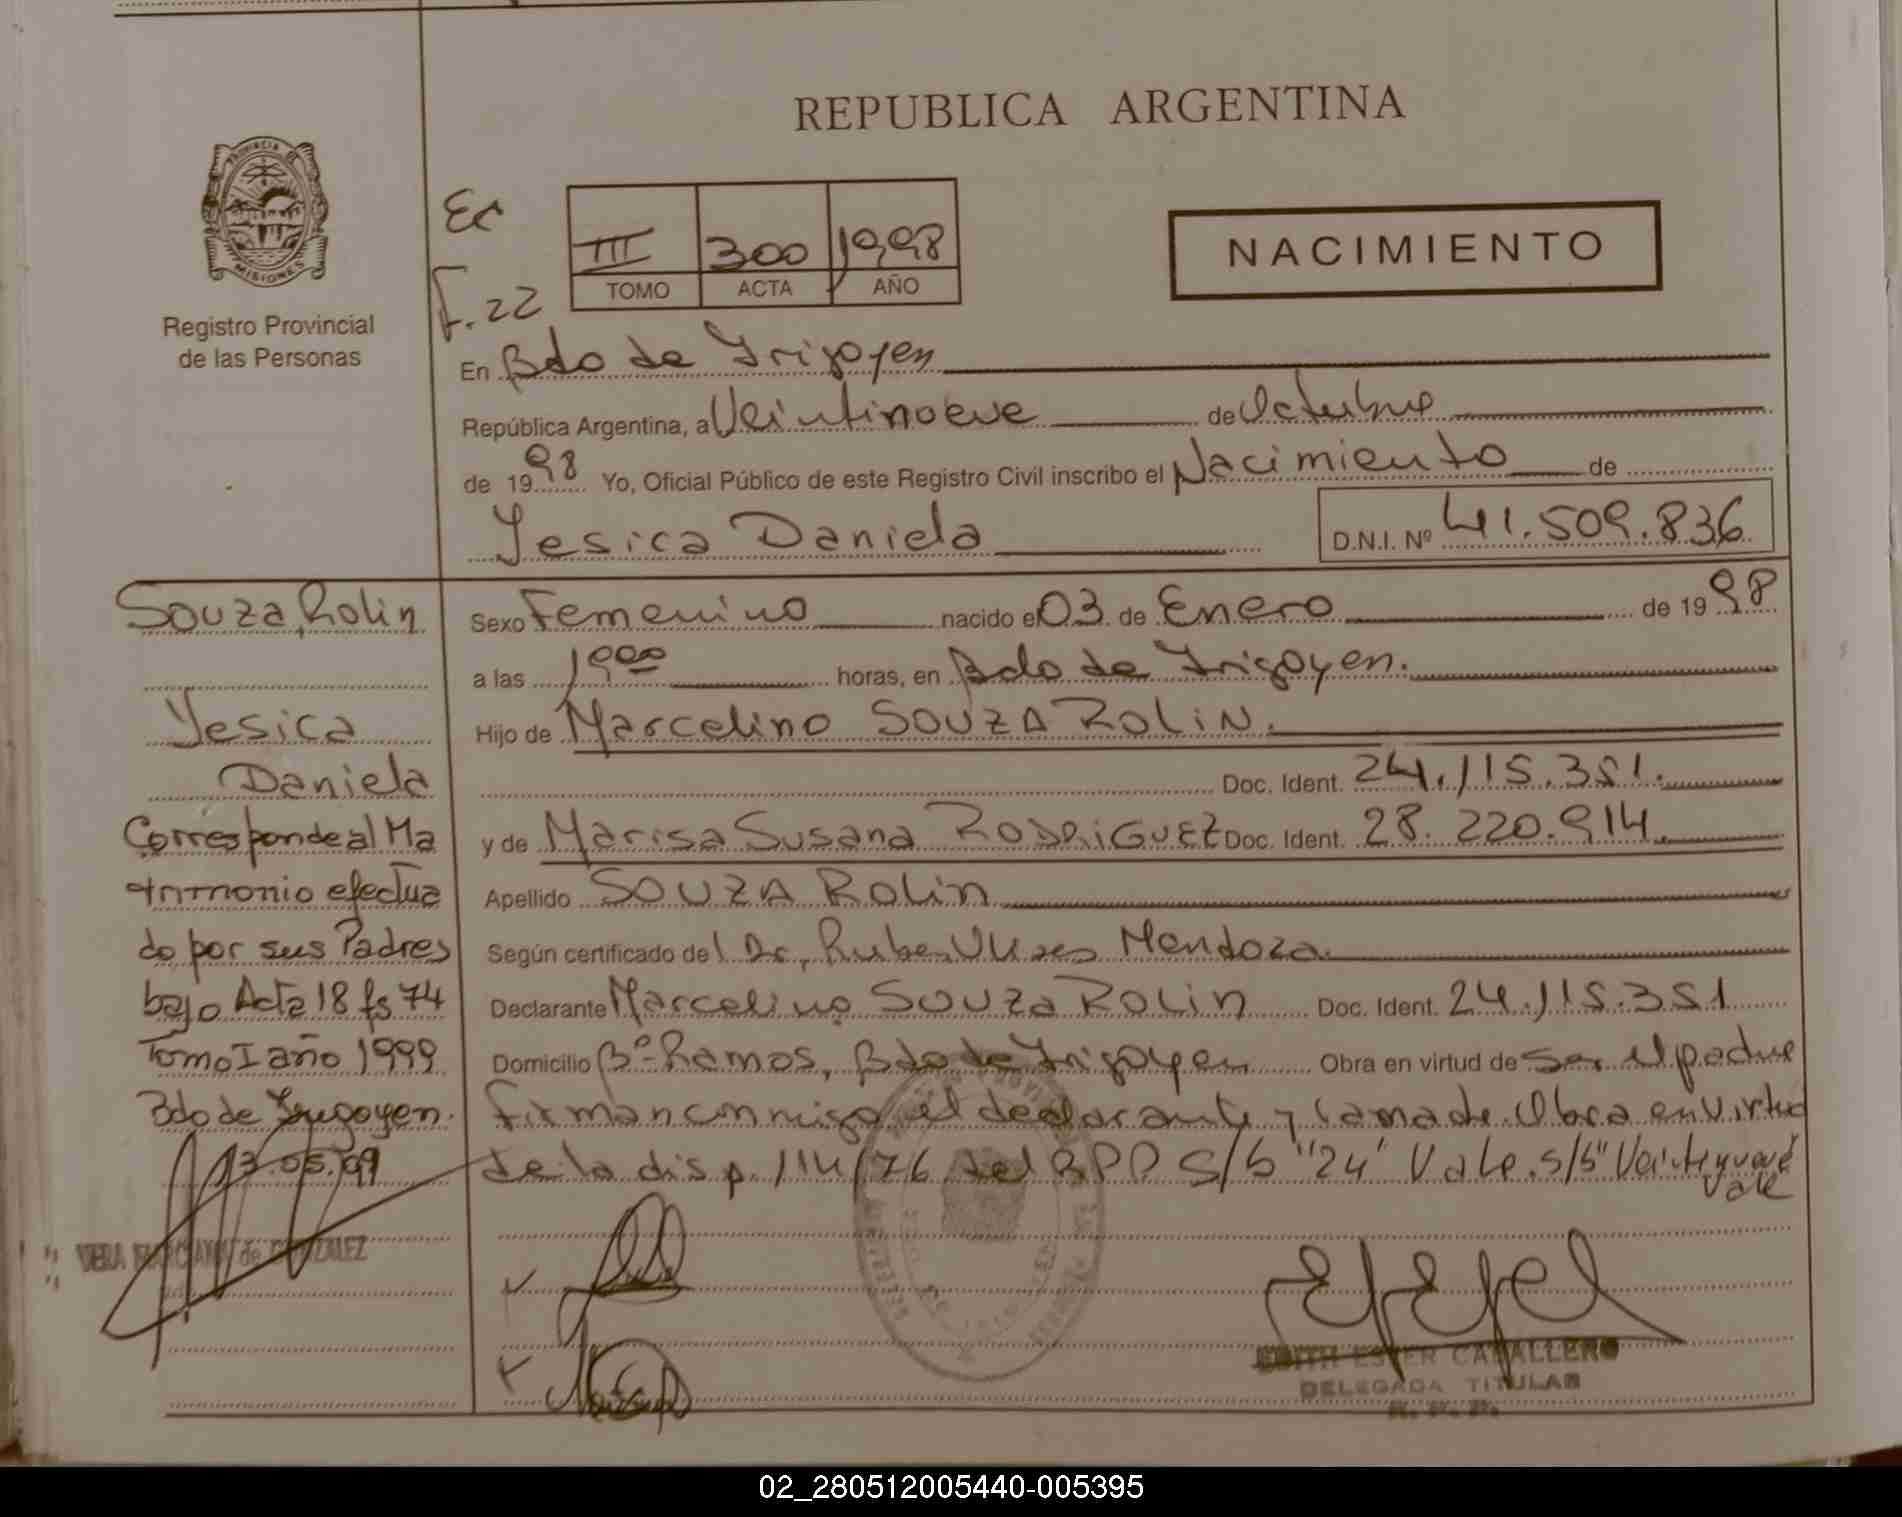 REPUBLICA ARGENTINA
PROVINCIA DE
MISIONES
Registro Provincial
de las Personas
Ec
F. 22
III 300 1998
TOMO ACTA AÑO
NACIMIENTO
En Bdo de Irigoyen
República Argentina, a Veintinoeve de Octubre
de 1998 Yo, Oficial Público de este Registro Civil inscribo el Nacimiento de
Yesica Daniela D.N.I. Nº 41.509.836
Souza Rolin
Yesica
Daniela
Corresponde al Ma
trimonio efectua
do por sus Padres
bajo Acta 18 fs 74
Tomo I año 1999
Bdo de Irigoyen.
13.05.09
VERA MARCIANA de GONZALEZ
Sexo Femenino nacido el 03 de Enero de 1998
a las 19 00 horas, en Bdo de Irigoyen.
Hijo de Marcelino SOUZA ROLIN.
Doc. Ident. 24.115.351.
y de Marisa Susana RODRIGUEZ Doc. Ident. 28.220.914.
Apellido SOUZA Rolin
Según certificado del Dr. Ruben Ulises Mendoza.
Declarante Marcelino SOUZA ROLIN Doc. Ident. 24.115.351
Domicilio Bº Ramos, Bdo de Irigoyen Obra en virtud de Ser el padre
firman conmigo el declarante y la madre. Obra en virtud
de la disp. 114/76 del RPP S/b "24" Vale. s/b" Veintinueve
Vale
EDITH ESTER CABALLERO
DELEGADA TITULAR
R. P. P.
02_280512005440-005395